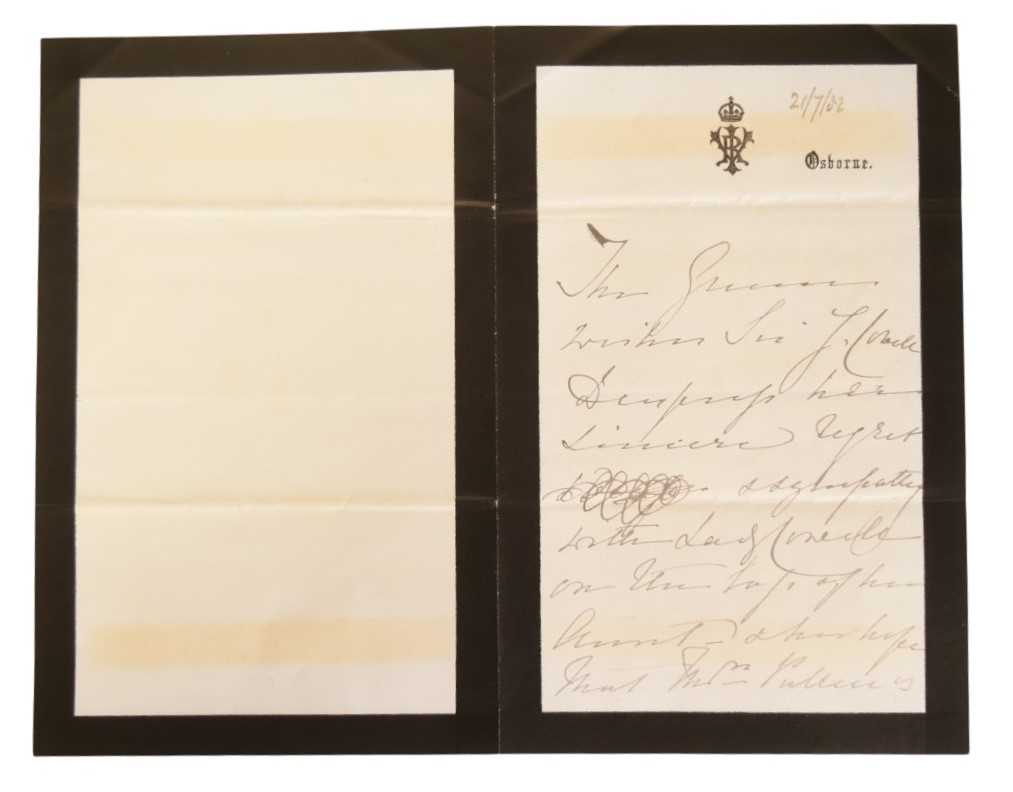 21/7/82
VRI
Osborne.
The Queen
wishes Sir J. Cowell
to express her
sincere regret
& sympathy
with Lady Cowell
on the loss of her
Aunt & her hope
that Mrs Pullen is